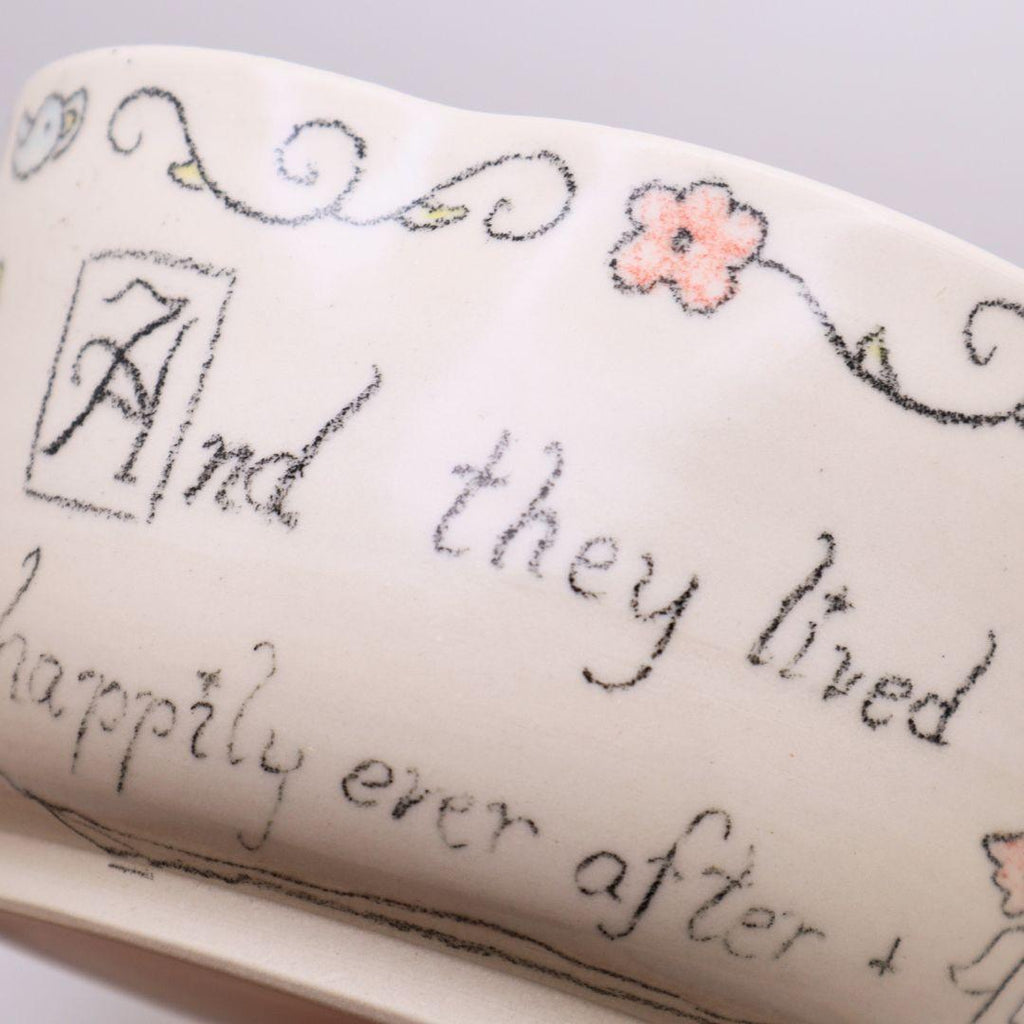 And they lived
happily ever after